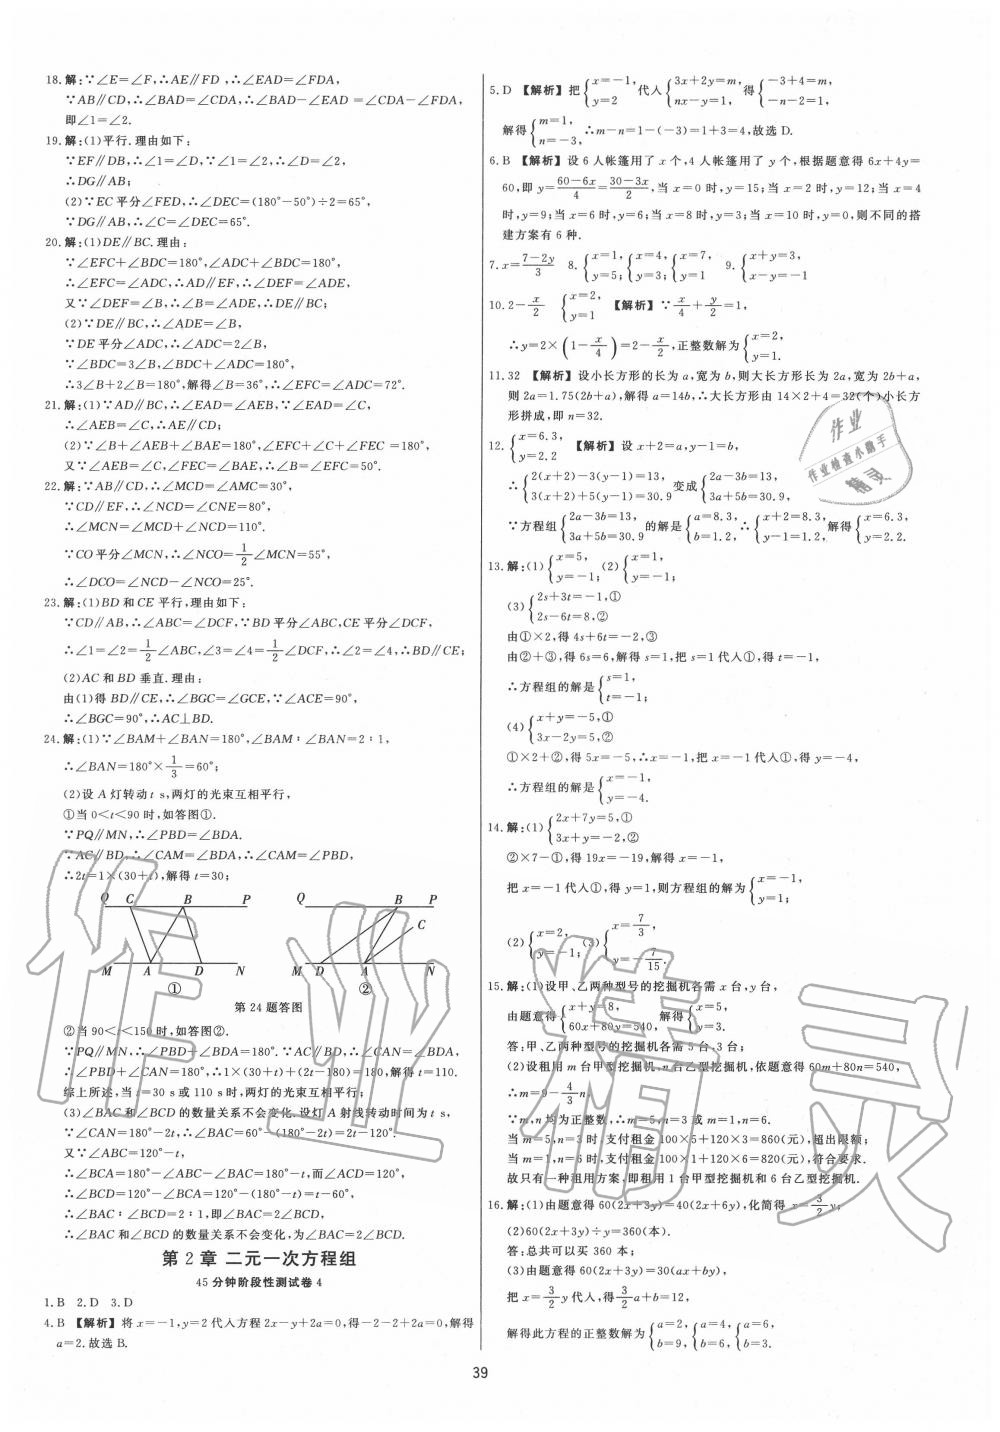 18.解:∵∠E=∠F,∴AE∥FD,∴∠EAD=∠FDA,
∵AB∥CD,∴∠BAD=∠CDA,∴∠BAD-∠EAD=∠CDA-∠FDA,
即∠1=∠2.
19.解:(1)平行.理由如下:
∵EF∥DB,∴∠1=∠D,∵∠1=∠2,∴∠D=∠2,
∴DG∥AB;
(2)∵EC平分∠FED,∴∠DEC=(180°-50°)÷2=65°,
∵DG∥AB,∴∠C=∠DEC=65°.
20.解:(1)DE∥BC.理由:
∵∠EFC+∠BDC=180°,∠ADC+∠BDC=180°,
∴∠EFC=∠ADC,∴AD∥EF,∴∠DEF=∠ADE,
又∵∠DEF=∠B,∴∠B=∠ADE,∴DE∥BC;
(2)∵DE∥BC,∴∠ADE=∠B,
∵DE平分∠ADC,∴∠ADC=2∠B,
∵∠BDC=3∠B,∠BDC+∠ADC=180°,
∴3∠B+2∠B=180°,解得∠B=36°,∴∠EFC=∠ADC=72°.
21.解:(1)∵AD∥BC,∴∠EAD=∠AEB,∵∠EAD=∠C,
∴∠AEB=∠C,∴AE∥CD;
(2)∵∠B+∠AEB+∠BAE=180°,∠EFC+∠C+∠FEC=180°,
又∵∠AEB=∠C,∠FEC=∠BAE,∴∠B=∠EFC=50°.
22.解:∵AB∥CD,∴∠MCD=∠AMC=30°,
∵CD∥EF,∴∠NCD=∠CNE=80°,
∴∠MCN=∠MCD+∠NCD=110°.
∵CO平分∠MCN,∴∠NCO=1/2∠MCN=55°,
∴∠DCO=∠NCD-∠NCO=25°.
23.解:(1)BD和CE平行,理由如下:
∵CD∥AB,∴∠ABC=∠DCF,∵BD平分∠ABC,CE平分∠DCF,
∴∠1=∠2=1/2∠ABC,∠3=∠4=1/2∠DCF,∴∠2=∠4,∴BD∥CE;
(2)AC和BD垂直.理由:
由(1)得BD∥CE,∴∠BGC=∠GCE,∵∠ACE=90°,
∴∠BGC=90°,∴AC⊥BD.
24.解:(1)∵∠BAM+∠BAN=180°,∠BAM∶∠BAN=2∶1,
∴∠BAN=180°×1/3=60°;
(2)设A灯转动t s,两灯的光束互相平行,
①当0<t<90时,如答图①.
∵PQ∥MN,∴∠PBD=∠BDA.
∵AC∥BD,∴∠CAM=∠BDA,∴∠CAM=∠PBD,
∴2t=1×(30+t),解得t=30;
Q C B P
M A D N
①
Q B P
C
M D A N
②
第24题答图
②当90<t<150时,如答图②.
∵PQ∥MN,∴∠PBD+∠BDA=180°.∵AC∥BD,∴∠CAN=∠BDA,
∴∠PBD+∠CAN=180°,∴1×(30+t)+(2t-180)=180,解得t=110.
综上所述,当t=30 s或110 s时,两灯的光束互相平行;
(3)∠BAC和∠BCD的数量关系不会变化.设灯A射线转动时间为t s,
∵∠CAN=180°-2t,∴∠BAC=60°-(180°-2t)=2t-120°.
又∵∠ABC=120°-t,
∴∠BCA=180°-∠ABC-∠BAC=180°-t,而∠ACD=120°,
∴∠BCD=120°-∠BCA=120°-(180°-t)=t-60°,
∴∠BAC∶∠BCD=2∶1,即∠BAC=2∠BCD,
∴∠BAC和∠BCD的数量关系不会变化,为∠BAC=2∠BCD.
第2章 二元一次方程组
45分钟阶段性测试卷4
1.B 2.D 3.D
4.B 【解析】将x=-1,y=2代入方程2x-y+2a=0,得-2-2+2a=0,解得
a=2.故选B.
5.D 【解析】把{x=-1, y=2 代入{3x+2y=m, nx-y=1, 得{-3+4=m, -n-2=1,
解得{m=1, n=-3, ∴m-n=1-(-3)=1+3=4,故选D.
6.B 【解析】设6人帐篷用了x个,4人帐篷用了y个,根据题意得6x+4y=
60,即y=(60-6x)/4=(30-3x)/2,当x=0时,y=15;当x=2时,y=12;当x=4
时,y=9;当x=6时,y=6;当x=8时,y=3;当x=10时,y=0,则不同的搭
建方案有6种.
7.x=(7-2y)/3 8.{x=1, y=5; {x=4, y=3; {x=7, y=1 9.{x+y=3, x-y=-1
10.2-x/2 {x=2, y=1 【解析】∵x/4+y/2=1,
∴y=2×(1-x/4)=2-x/2,正整数解为{x=2, y=1.
11.32 【解析】设小长方形的长为a,宽为b,则大长方形长为2a,宽为2b+a,
则2a=1.75(2b+a),解得a=14b,∴大长方形由14×2+4=32(个)小长方
形拼成,即n=32.
12.{x=6.3, y=2.2 【解析】设x+2=a,y-1=b,
∴{2(x+2)-3(y-1)=13, 3(x+2)+5(y-1)=30.9 变成{2a-3b=13, 3a+5b=30.9,
∵方程组{2a-3b=13, 3a+5b=30.9 的解是{a=8.3, b=1.2, ∴{x+2=8.3, y-1=1.2, 解得{x=6.3, y=2.2.
13.解:(1){x=5, y=-1; (2){x=1, y=-1;
(3){2s+3t=-1,① 2s-6t=8,②
由①×2,得4s+6t=-2,③
由②+③,得6s=6,解得s=1,把s=1代入①,得t=-1,
∴方程组的解是{s=1, t=-1;
(4){x+y=-5,① 3x-2y=5,②
①×2+②,得5x=-5,∴x=-1,把x=-1代入①,得y=-4,
∴方程组的解是{x=-1, y=-4.
14.解:(1){2x+7y=5,① 3x+y=-2,②
②×7-①,得19x=-19,解得x=-1,
把x=-1代入①,得y=1,则方程组的解为{x=-1, y=1;
(2){x=2, y=-1; (3){x=7/3, y=-7/15.
15.解:(1)设甲、乙两种型号的挖掘机各需x台,y台,
由题意得{x+y=8, 60x+80y=540, 解得{x=5, y=3.
答:甲、乙两种型号的挖掘机各需5台、3台;
(2)设租用m台甲型挖掘机,n台乙型挖掘机,依题意得60m+80n=540,
∴m=9-4/3n.
∵m,n均为正整数,∴m=5,n=3或m=1,n=6.
当m=5,n=3时,支付租金100×5+120×3=860(元),超出限额;
当m=1,n=6时,支付租金100×1+120×6=820(元),符合要求.
故只有一种租用方案,即租用1台甲型挖掘机和6台乙型挖掘机.
16.解:(1)由题意得60(2x+3y)=40(2x+6y),化简得x=3/2y;
(2)60(2x+3y)÷y=360(本).
答:总共可以买360本;
(3)由题意得60(2x+3y)=30(ax+by),
把x=3/2y代入,得3/2a+b=12,
解得此方程的正整数解为{a=2, b=9, {a=4, b=6, {a=6, b=3.
39
作业
作业检查小助手
精灵
作业精灵